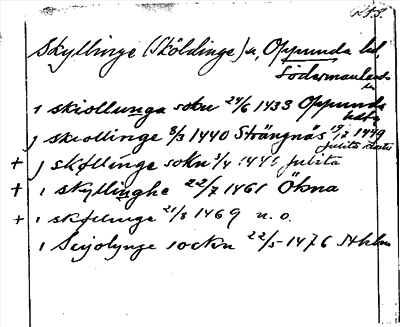 Skyllinge (Sköldinge) sn, Oppunda hd,
Södermanlands
ln
i skiollunga sokn 24/6 1433 Oppunda
hdtn
j skiollinge 3/3 1440 Strängnäs 13/12 1449
Julita kloster
+ j skøllinge sokn 3/4 1441 Julita
+ i skyllinghe 22/7 1461 Ökna
+ i skøllinge 21/8 1469 u. o.
i Seyolynge sockn 22/5 1476 Sthlm